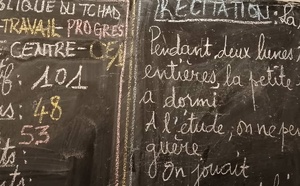 BLIQUE DU TCHAD
-TRAVAIL PROGRES
CENTRE-
f: 101
s: 48
53
ts:
RÉCITATION: la
Pendant deux lunes
entières, la petite
a dormi.
A l'étude, on ne pe
guère
On jouait